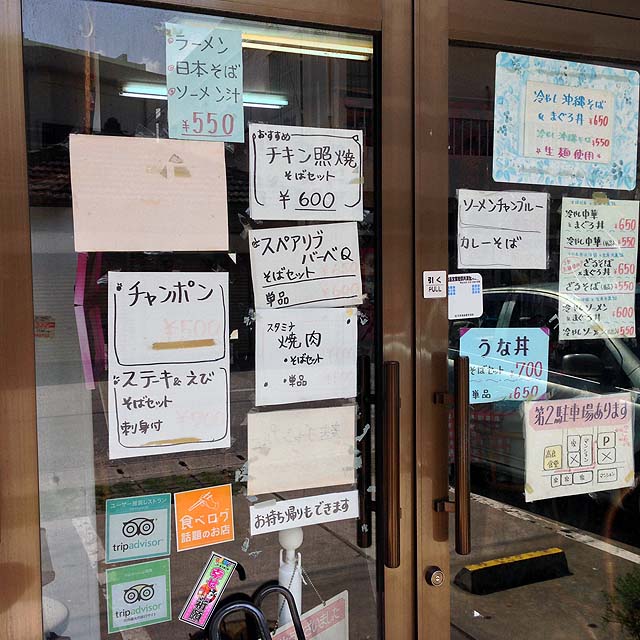 ラーメン
日本そば
ソーメン汁
¥550
おすすめ
チキン照焼
そばセット
¥600
スペアリブ
バーベQ
そばセット
単品
チャンポン
ステーキ&えび
そばセット
刺身付
スタミナ
焼肉
・そばセット
・単品
お持ち帰りもできます
ユーザー推奨レストラン
tripadvisor
食べログ
話題のお店
tripadvisor
冷やし沖縄そば
&まぐろ丼 ¥650
冷やし沖縄そば ¥550
生麺使用
ソーメンチャンプルー
カレーそば
引く
PULL
冷やし中華
&まぐろ丼 ¥650
冷やし中華 ¥550
ざるそば
&まぐろ丼 ¥650
ざるそば ¥550
冷やしソーメン
&まぐろ丼 ¥600
冷やしソーメン ¥550
うな丼
そばセット ¥700
単品 ¥650
第2駐車場あります
P